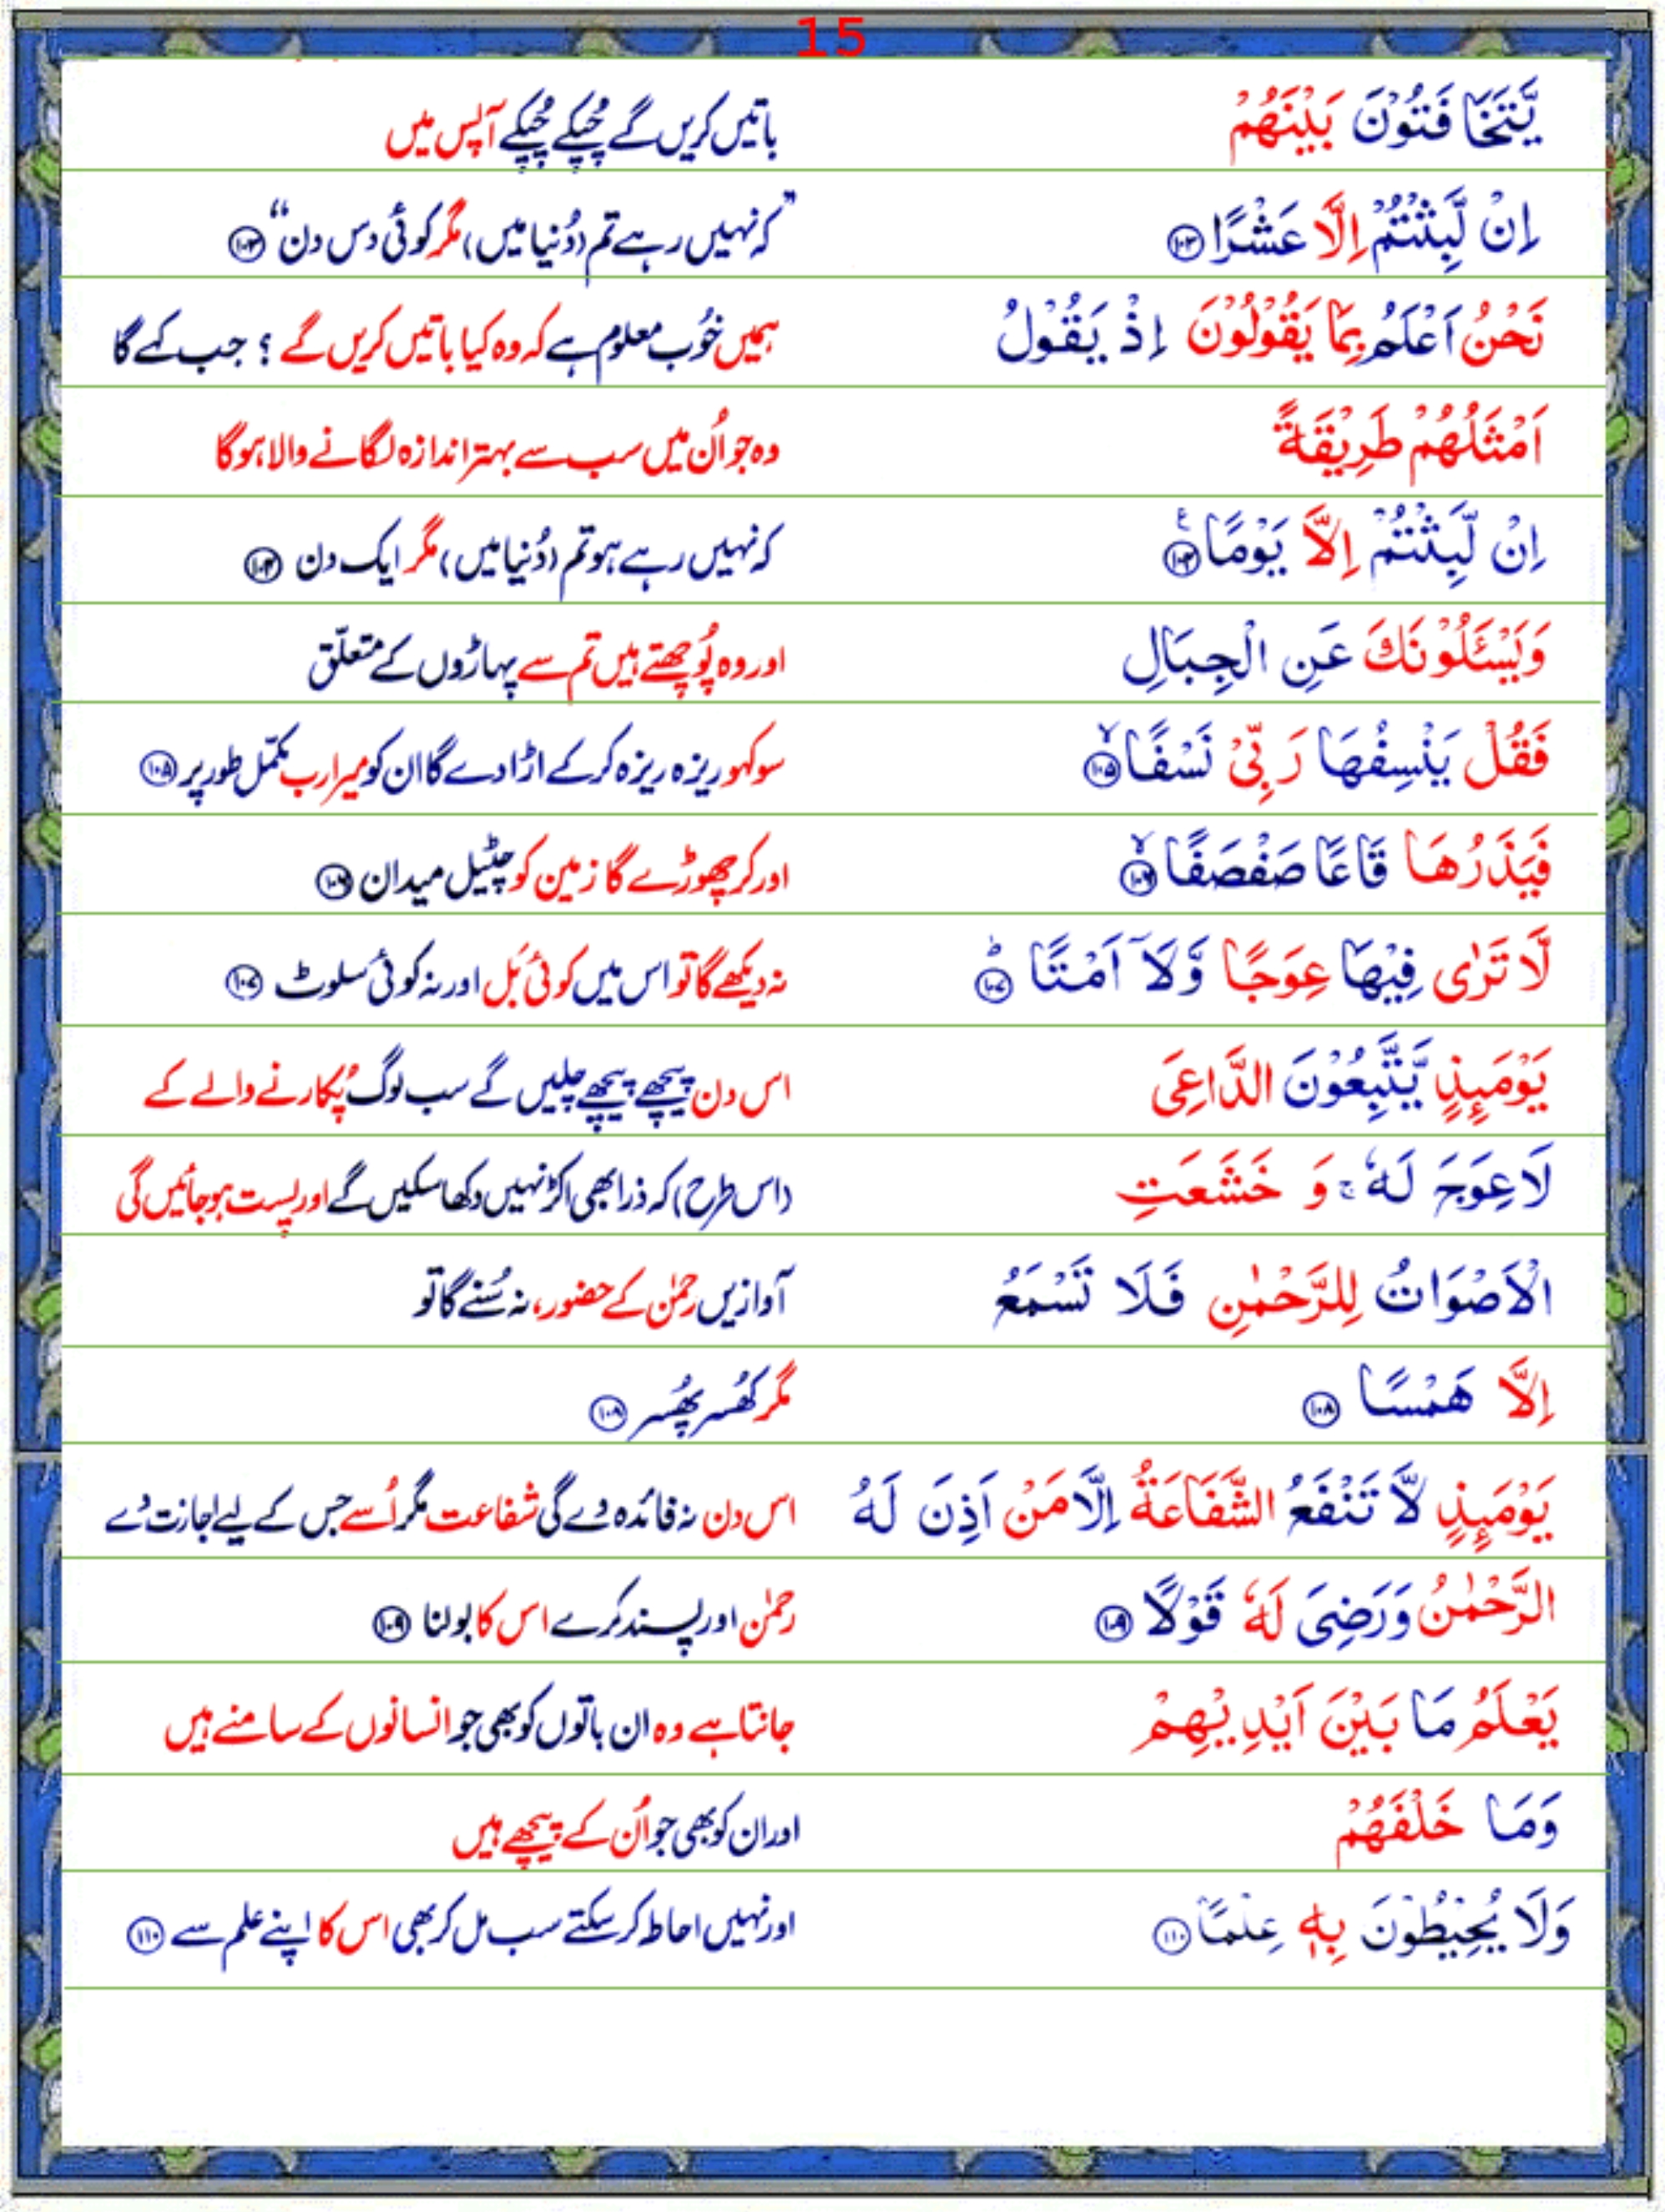 15
يَّتَخَافَتُوْنَ بَيْنَهُمْ باتیں کریں گے چُپکے چُپکے آپس میں
اِنْ لَّبِثْتُمْ اِلَّا عَشْرًا ۝۱۰۳ ”کہ نہیں رہے تم (دُنیا میں) مگر کوئی دس دن“ ۝۱۰۳
نَحْنُ اَعْلَمُ بِمَا يَقُوْلُوْنَ اِذْ يَقُوْلُ ہمیں خُوب معلوم ہے کہ وہ کیا باتیں کریں گے ؟ جب کہے گا
اَمْثَلُهُمْ طَرِيْقَةً وہ جو اُن میں سب سے بہتر اندازہ لگانے والا ہوگا
اِنْ لَّبِثْتُمْ اِلَّا يَوْمًا ۝۱۰۴ ع کہ نہیں رہے ہو تم (دُنیا میں) مگر ایک دن ۝۱۰۴
وَيَسْـَٔلُوْنَكَ عَنِ الْجِبَالِ اور وہ پُوچھتے ہیں تم سے پہاڑوں کے متعلّق
فَقُلْ يَنْسِفُهَا رَبِّيْ نَسْفًا ۝۱۰۵ۙ سو کہو ریزہ ریزہ کرکے اڑا دے گا ان کو میرا رب مکمّل طور پر ۝۱۰۵
فَيَذَرُهَا قَاعًا صَفْصَفًا ۝۱۰۶ۙ اور کر چھوڑے گا زمین کو چٹیل میدان ۝۱۰۶
لَّا تَرٰى فِيْهَا عِوَجًا وَّلَآ اَمْتًا ۝۱۰۷ؕ نہ دیکھے گا تو اس میں کوئی بَل اور نہ کوئی سلوٹ ۝۱۰۷
يَوْمَىِٕذٍ يَّتَّبِعُوْنَ الدَّاعِيَ اس دن پیچھے پیچھے چلیں گے سب لوگ پُکارنے والے کے
لَا عِوَجَ لَهٗ ۚ وَ خَشَعَتِ (اس طرح) کہ ذرا بھی اکڑ نہیں دکھا سکیں گے اور پست ہوجائیں گی
الْاَصْوَاتُ لِلرَّحْمٰنِ فَلَا تَسْمَعُ آوازیں رحمٰن کے حضور، نہ سُنے گا تو
اِلَّا هَمْسًا ۝۱۰۸ مگر کھُسر پھُسر ۝۱۰۸
يَوْمَىِٕذٍ لَّا تَنْفَعُ الشَّفَاعَةُ اِلَّا مَنْ اَذِنَ لَهُ اس دن نہ فائدہ دے گی شفاعت مگر اُسے جس کے لیے اجازت دے
الرَّحْمٰنُ وَرَضِيَ لَهٗ قَوْلًا ۝۱۰۹ رحمٰن اور پسند کرے اس کا بولنا ۝۱۰۹
يَعْلَمُ مَا بَيْنَ اَيْدِيْهِمْ جانتا ہے وہ ان باتوں کو بھی جو انسانوں کے سامنے ہیں
وَمَا خَلْفَهُمْ اور ان کو بھی جو اُن کے پیچھے ہیں
وَلَا يُحِيْطُوْنَ بِهٖ عِلْمًا ۝۱۱۰ اور نہیں احاطہ کر سکتے سب مل کر بھی اس کا اپنے علم سے ۝۱۱۰